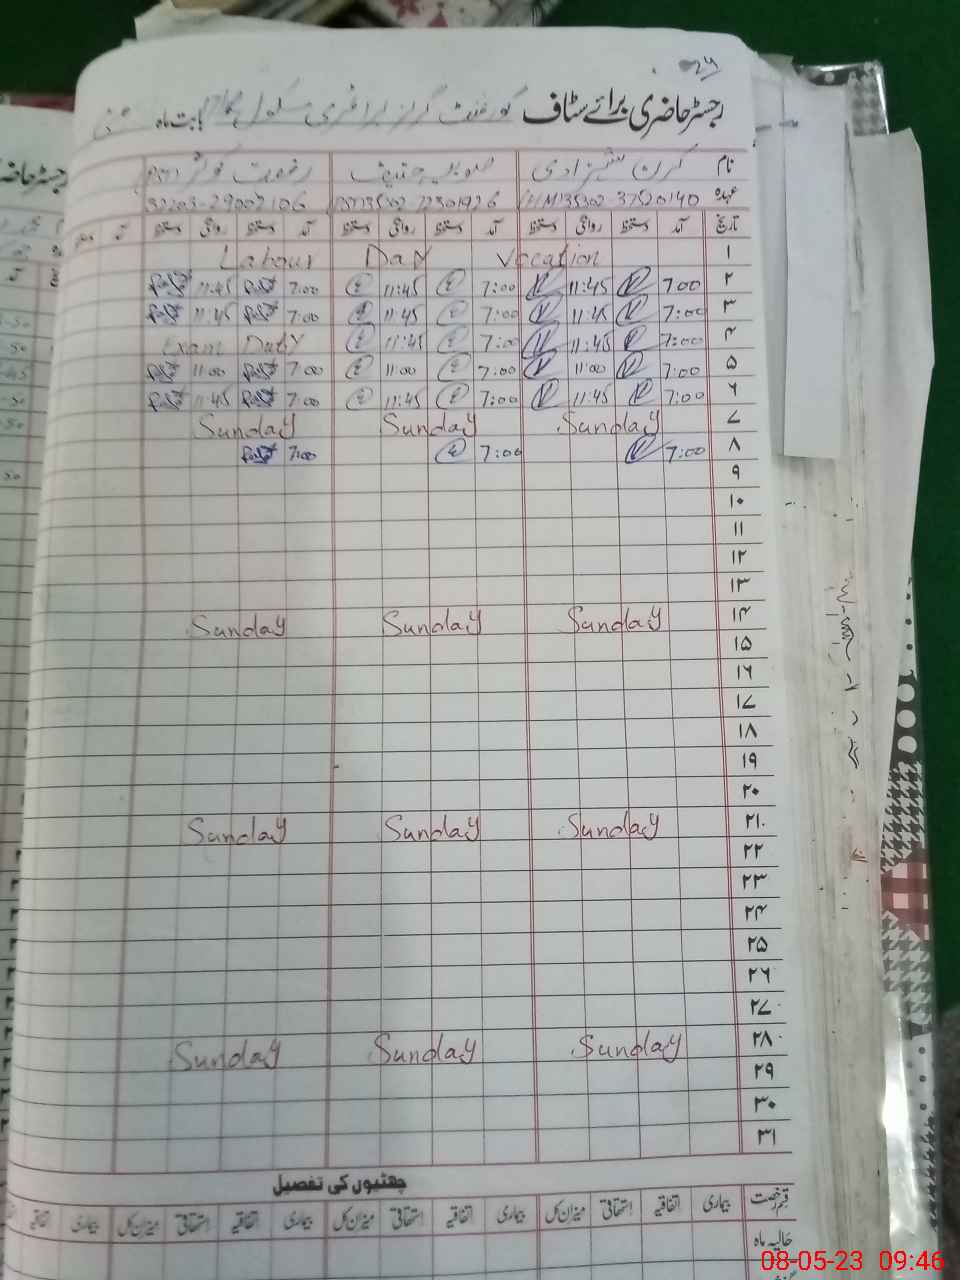 رجسٹر حاضری برائے سٹاف گورنمنٹ گرلز پرائمری سکول بابت ماہ مئی
نام کرن شہزادی صوبیہ حنیف رفعت کوثر
عہدہ 35302-3752014-0
تاریخ آمد دستخط روانگی دستخط آمد دستخط روانگی دستخط آمد دستخط روانگی دستخط آمد
۱ Labour Day Vocation
۲ 7:00 11:45 7:00 11:45 7:00 11:45
۳ 7:00 11:45 7:00 11:45 7:00 11:45
۴ 7:00 11:45 7:00 11:45 Exam Duty
۵ 7:00 11:00 7:00 11:00 7:00 11:00
۶ 7:00 11:45 7:00 11:45 7:00 11:45
۷ Sunday Sunday Sunday
۸ 7:00 7:00 7:00
۹
۱۰
۱۱
۱۲
۱۳
۱۴ Sunday Sunday Sunday
۱۵
۱۶
۱۷
۱۸
۱۹
۲۰
۲۱ Sunday Sunday Sunday
۲۲
۲۳
۲۴
۲۵
۲۶
۲۷
۲۸ Sunday Sunday Sunday
۲۹
۳۰
۳۱
چھٹیوں کی تفصیل
قسم رخصت بیماری اتفاقیہ استحقاقی میزان کل بیماری اتفاقیہ استحقاقی میزان کل بیماری اتفاقیہ استحقاقی میزان کل بیماری اتفاقیہ
حالیہ ماہ
08-05-23 09:46